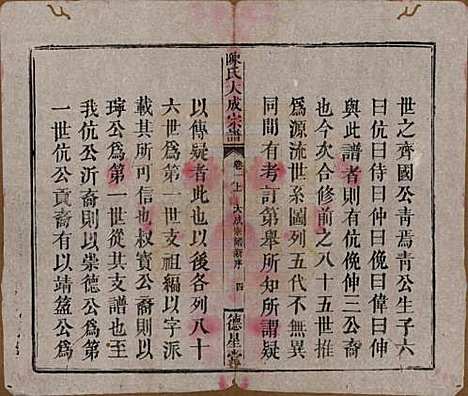 世之齊國公青焉青公生子六
曰伉曰侍曰仲曰俛曰偉曰伊
與此譜者則有伉俛仲三公裔
也今次合修前之八十五世推
爲源流世系圖列五代不無異
同間有考訂第舉所知所謂疑
陳氏大成宗譜
卷上 大成宗譜新序 四
德星堂
以傳疑者此也以後各列八十
六世爲第一世支祖編以字派
載其所可信也叔寶公裔則以
璋公爲第一世從其支譜也至
我伉公沂裔則以崇德公爲第
一世伉公貢裔有以靖簋公爲